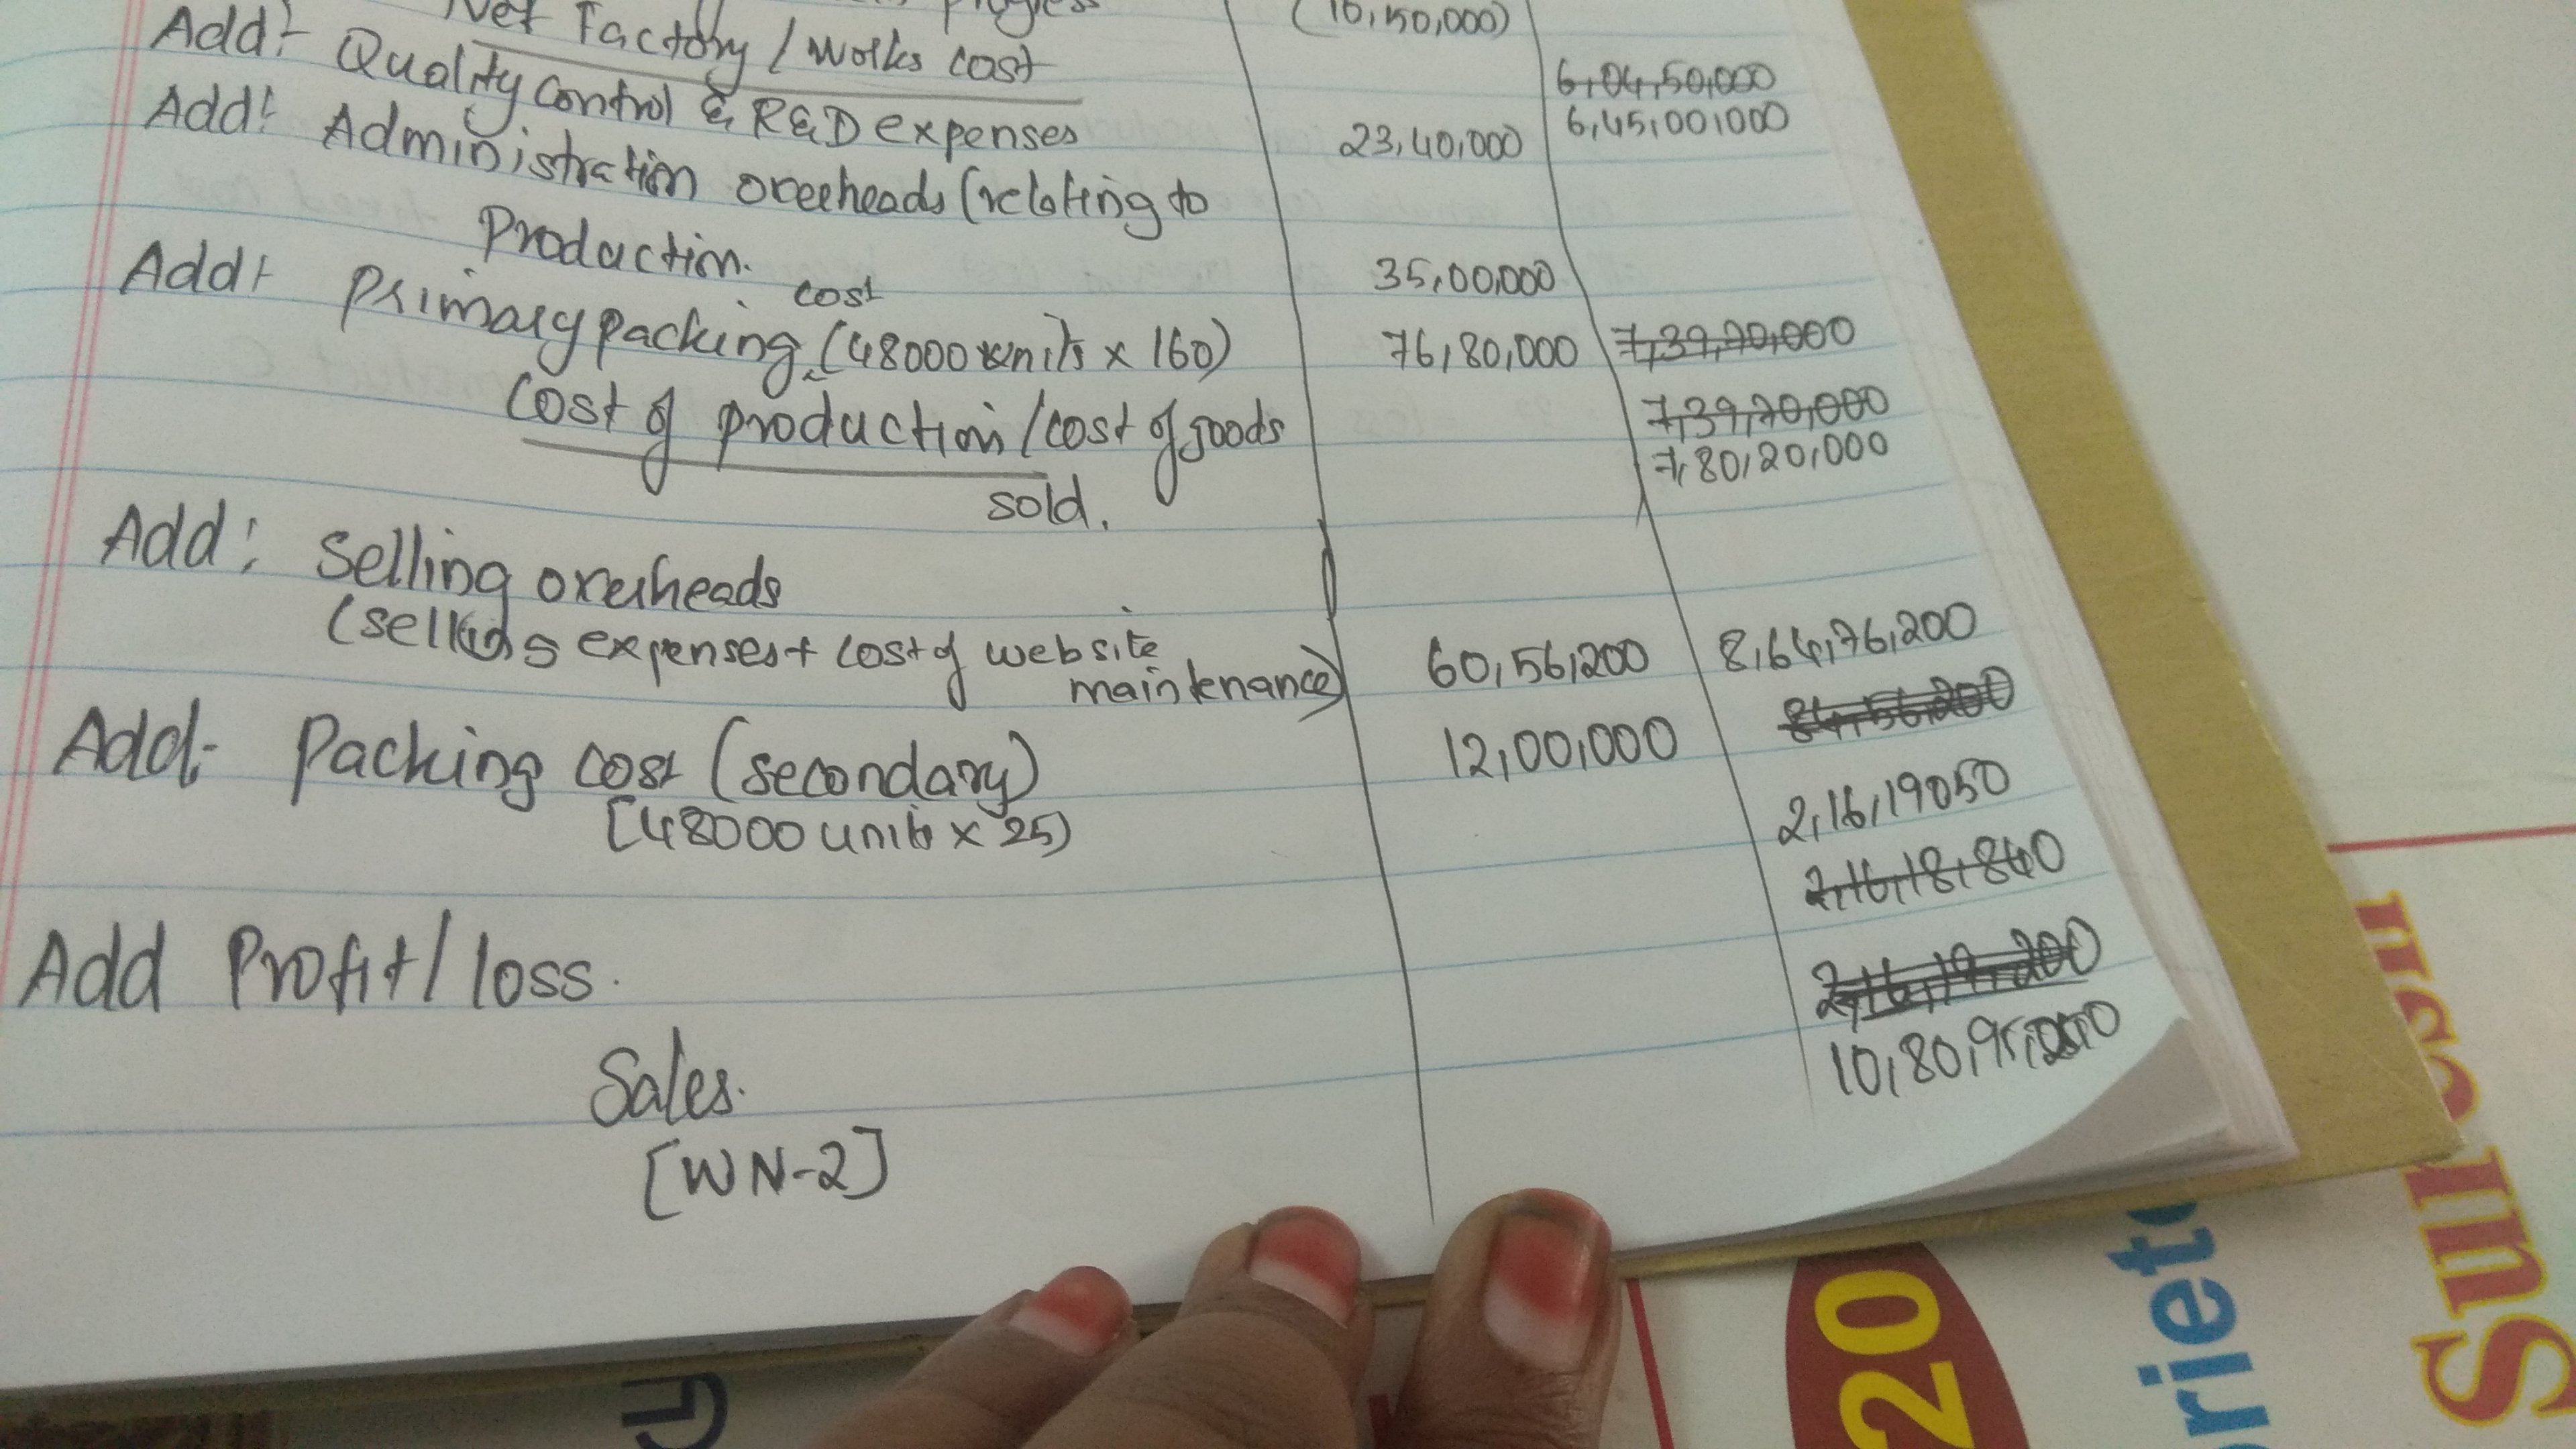 Progress (10,50,000)
Net Factory / works cost 6,04,50,000
6,45,00,000
Add:- Quality control & R&D expenses 23,40,000
Add: Administration overheads (relating to
Production. 35,00,000
Add:- Primary packing cost (48000 units x 160) 76,80,000 7,39,70,000
7,39,70,000
Cost of production/cost of goods sold. 7,80,20,000
Add: Selling overheads
(selling expenses + cost of website maintenance) 60,56,200 8,64,76,200
84,56,200
Add:- Packing cost (secondary) 12,00,000
[48000 units x 25)
2,16,19050
2,16,18,840
Add Profit/loss. 2,16,19,200
Sales.
[WN-2]
20
Suresh